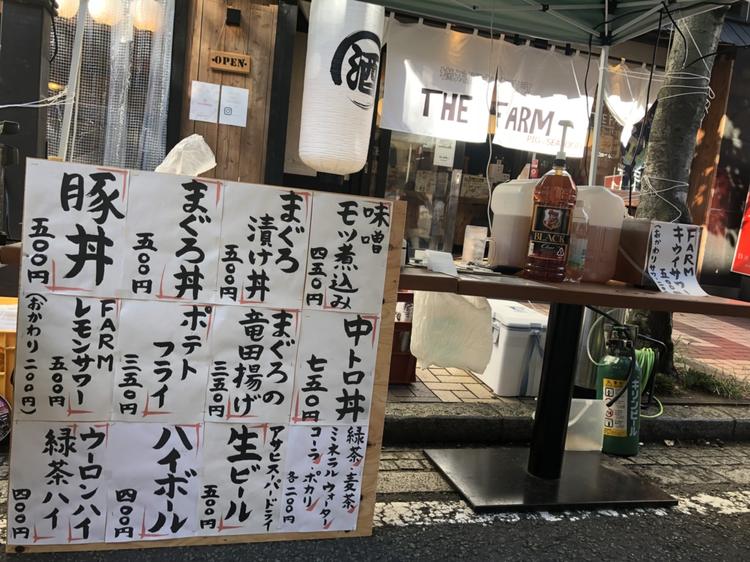 OPEN
酒
THE FARM
味噌
モツ煮込み
四五〇円
まぐろ
漬け丼
五〇〇円
まぐろ丼
五〇〇円
豚丼
五〇〇円
中トロ丼
七五〇円
まぐろの
竜田揚げ
三五〇円
ポテト
フライ
三五〇円
FARM
レモンサワー
五〇〇円
(おかわり二〇〇円)
緑茶・麦茶
ミネラルウォーター
コーラ・ポカリ
各二〇〇円
アサヒスーパードライ
生ビール
五〇〇円
ハイボール
四〇〇円
ウーロンハイ
緑茶ハイ
四〇〇円
BLACK
FARM
キウイサワ
キリンビール